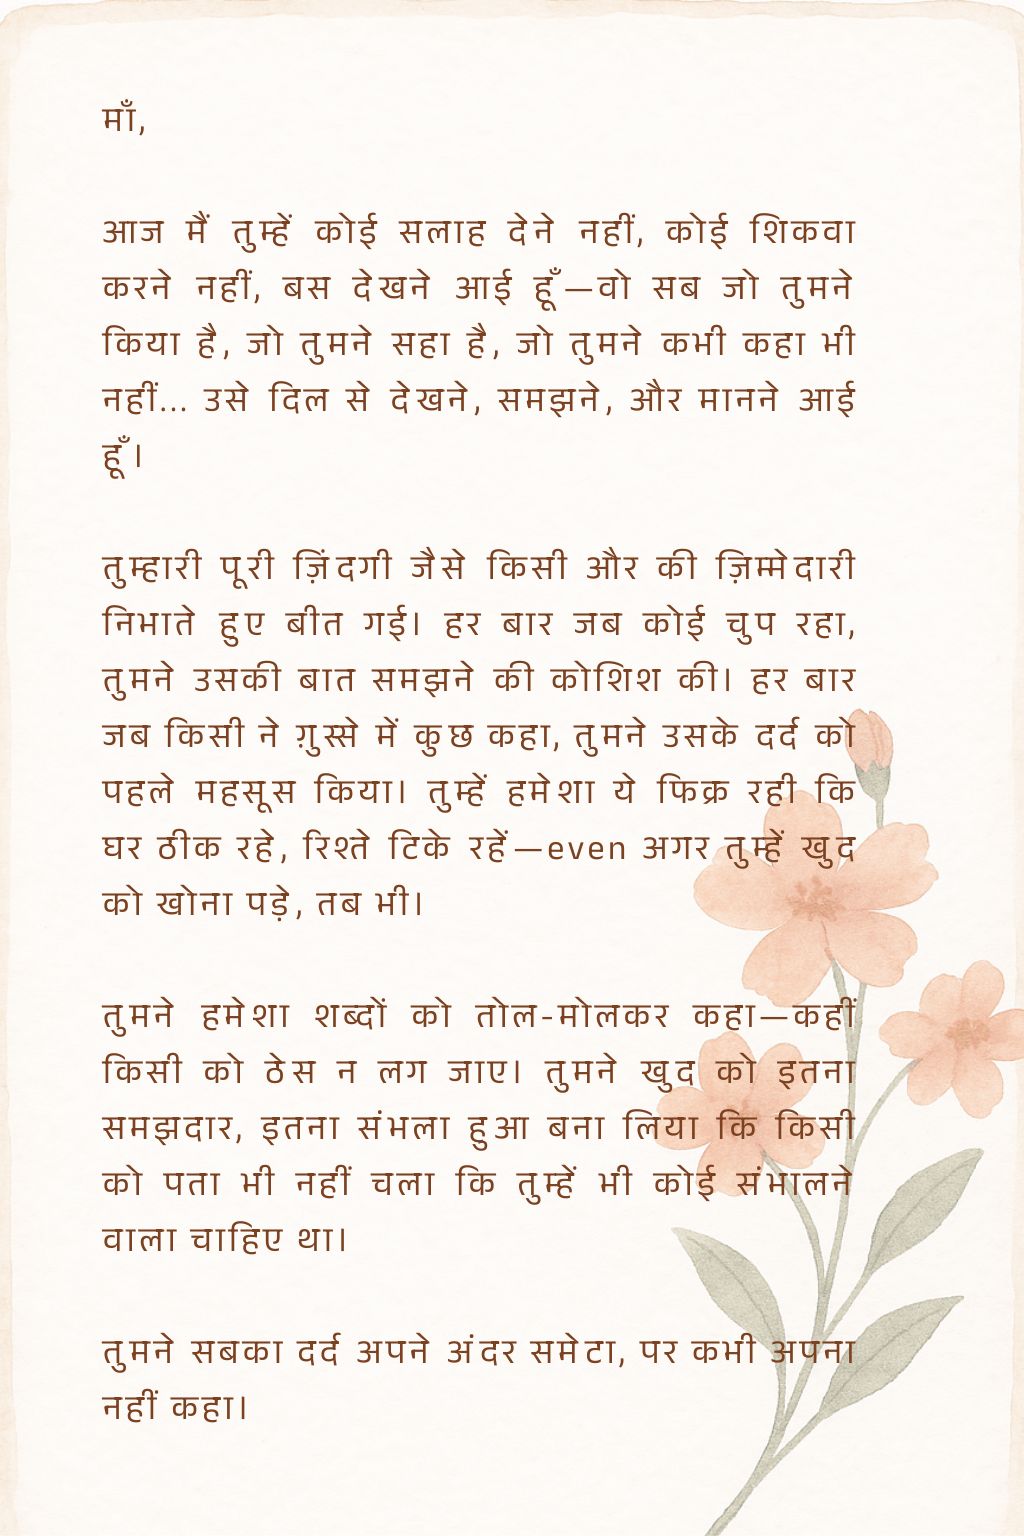 माँ,
आज मैं तुम्हें कोई सलाह देने नहीं, कोई शिकवा
करने नहीं, बस देखने आई हूँ—वो सब जो तुमने
किया है, जो तुमने सहा है, जो तुमने कभी कहा भी
नहीं... उसे दिल से देखने, समझने, और मानने आई
हूँ।
तुम्हारी पूरी ज़िंदगी जैसे किसी और की ज़िम्मेदारी
निभाते हुए बीत गई। हर बार जब कोई चुप रहा,
तुमने उसकी बात समझने की कोशिश की। हर बार
जब किसी ने ग़ुस्से में कुछ कहा, तुमने उसके दर्द को
पहले महसूस किया। तुम्हें हमेशा ये फिक्र रही कि
घर ठीक रहे, रिश्ते टिके रहें—even अगर तुम्हें खुद
को खोना पड़े, तब भी।
तुमने हमेशा शब्दों को तोल-मोलकर कहा—कहीं
किसी को ठेस न लग जाए। तुमने खुद को इतना
समझदार, इतना संभला हुआ बना लिया कि किसी
को पता भी नहीं चला कि तुम्हें भी कोई संभालने
वाला चाहिए था।
तुमने सबका दर्द अपने अंदर समेटा, पर कभी अपना
नहीं कहा।